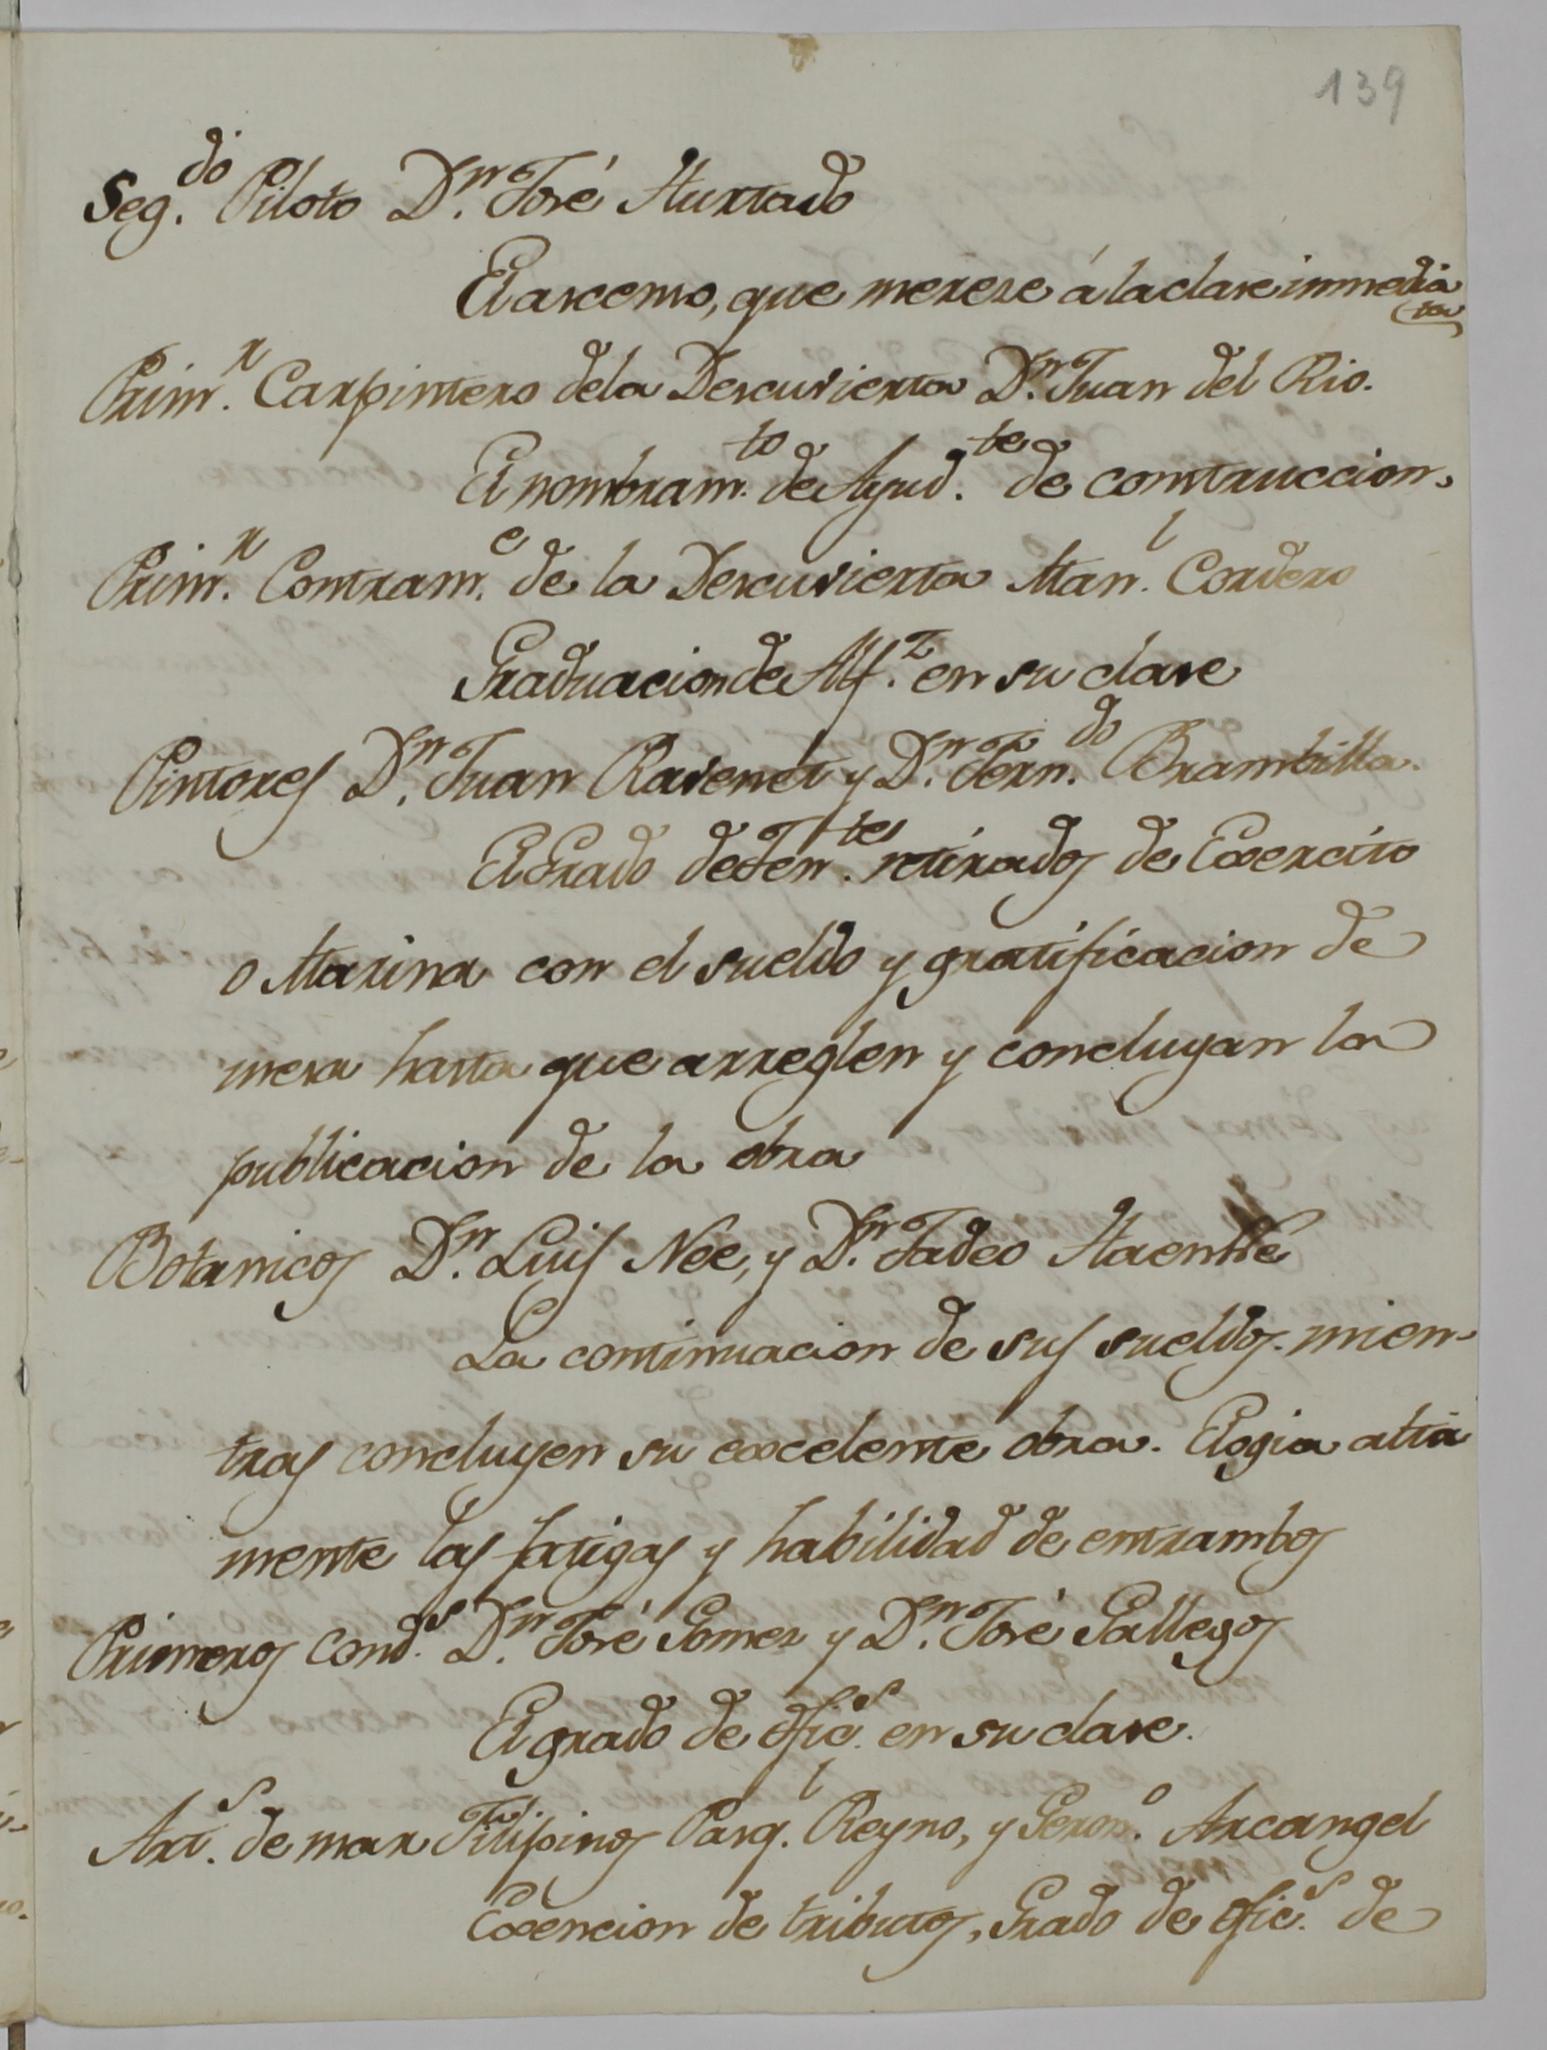 139
Seg.do Piloto Dn. José Hurtado
El ascenso, que merece á la clase inmedia
ta
Prim.r Carpintero dela Descuvierta Dn. Juan del Rio.
El nombram.to de Ayud.te de construccion.
Prim.r Contram.e de la Descuvierta Man.l Cordero
Graduacion de Alf.z en su clase
Pintores Dn. Juan Ravenet y Dn. Fern.do Brambilla.
El Grado de Ten.tes retirados de Exercito
o Marina con el sueldo y gratificacion de
mesa hasta que arreglen y concluyan la
publicacion de la obra
Botanicos Dn. Luis Nee, y Dn. Tadeo Haenke
La continuacion de sus sueldos mien-
tras concluyen su excelente obra. Elogia alta
mente las fatigas y habilidad de entrambos
Primeros cond.s Dn. José Gomez y Dn. José Gallegos
El grado de ofic.s en su clase.
Art.s de mar Filipinos Pasq.l Reyno, y Geron.o Arcangel
Exencion de tributos, Grado de ofic.s de